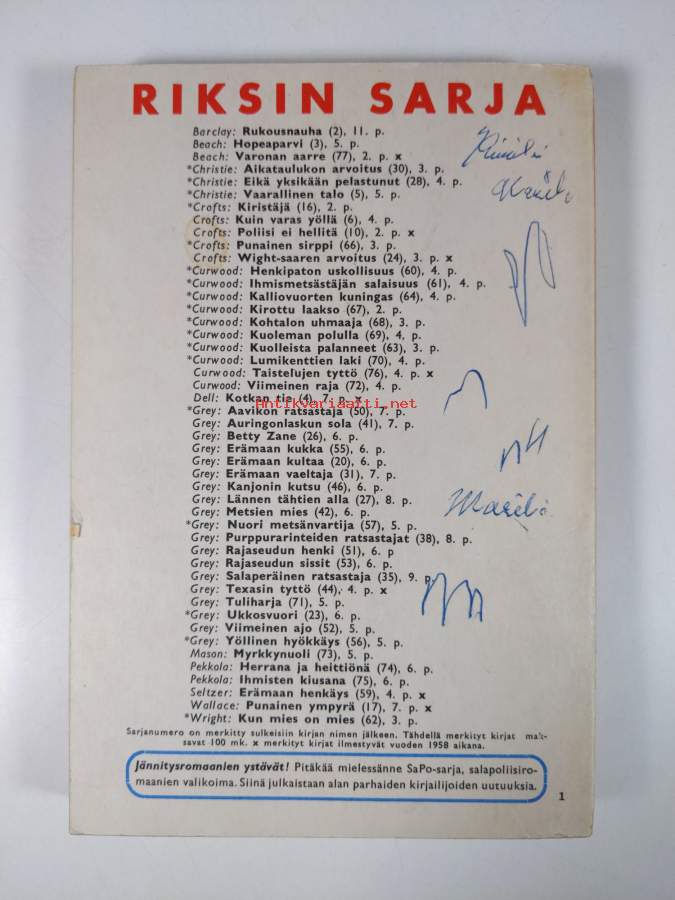 RIKSIN SARJA
Barclay: Rukousnauha (2), 11. p.
Beach: Hopeaparvi (3), 5. p.
Beach: Varonan aarre (77), 2. p. x
*Christie: Aikataulukon arvoitus (30), 3. p.
*Christie: Eikä yksikään pelastunut (28), 4. p.
*Christie: Vaarallinen talo (5), 5. p.
*Crofts: Kiristäjä (16), 2. p.
Crofts: Kuin varas yöllä (6), 4. p.
Crofts: Poliisi ei hellitä (10), 2. p. x
*Crofts: Punainen sirppi (66), 3. p.
Crofts: Wight-saaren arvoitus (24), 3. p. x
*Curwood: Henkipaton uskollisuus (60), 4. p.
*Curwood: Ihmismetsästäjän salaisuus (61), 4. p.
*Curwood: Kalliovuorten kuningas (64), 4. p.
*Curwood: Kirottu laakso (67), 2. p.
*Curwood: Kohtalon uhmaaja (68), 3. p.
*Curwood: Kuoleman polulla (69), 4. p.
*Curwood: Kuolleista palanneet (63), 3. p.
*Curwood: Lumikenttien laki (70), 4. p.
Curwood: Taistelujen tyttö (76), 4. p. x
Curwood: Viimeinen raja (72), 4. p.
Dell: Kotkan tie (4), 7. p. x
Antikvariaatti.net
*Grey: Aavikon ratsastaja (50), 7. p.
Grey: Auringonlaskun sola (41), 7. p.
Grey: Betty Zane (26), 6. p.
Grey: Erämaan kukka (55), 6. p.
Grey: Erämaan kultaa (20), 6. p.
Grey: Erämaan vaeltaja (31), 7. p.
Grey: Kanjonin kutsu (46), 6. p.
Grey: Lännen tähtien alla (27), 8. p.
Grey: Metsien mies (42), 6. p.
*Grey: Nuori metsänvartija (57), 5. p.
Grey: Purppurarinteiden ratsastajat (38), 8. p.
Grey: Rajaseudun henki (51), 6. p
Grey: Rajaseudun sissit (53), 6. p.
Grey: Salaperäinen ratsastaja (35), 9. p.
Grey: Texasin tyttö (44), 4. p. x
Grey: Tuliharja (71), 5. p.
*Grey: Ukkosvuori (23), 6. p.
Grey: Viimeinen ajo (52), 5. p.
*Grey: Yöllinen hyökkäys (56), 5. p.
Mason: Myrkkynuoli (73), 5. p.
Pekkola: Herrana ja heittiönä (74), 6. p.
Pekkola: Ihmisten kiusana (75), 6. p.
Seltzer: Erämaan henkäys (59), 4. p. x
Wallace: Punainen ympyrä (17), 7. p. x
*Wright: Kun mies on mies (62), 3. p.
Sarjanumero on merkitty sulkeisiin kirjan nimen jälkeen. Tähdellä merkityt kirjat mak-
savat 100 mk. x merkityt kirjat ilmestyvät vuoden 1958 aikana.
Jännitysromaanien ystävät! Pitäkää mielessänne SaPo-sarja, salapoliisiro-
maanien valikoima. Siinä julkaistaan alan parhaiden kirjailijoiden uutuuksia.
1